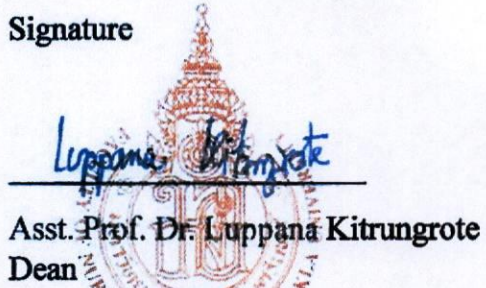 Signature
Luppana Kitrungrote
Asst. Prof. Dr. Luppana Kitrungrote
Dean